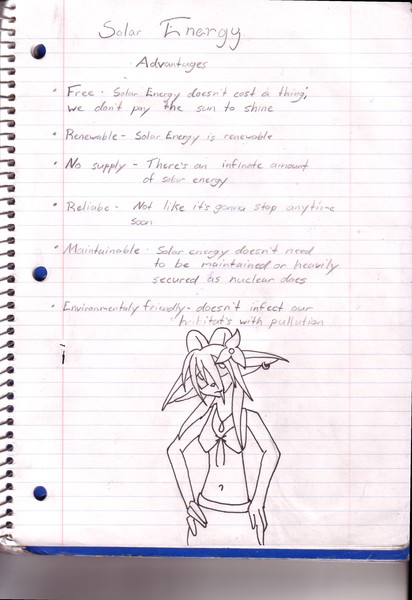 Solar Energy
Advantages
• Free - Solar Energy doesn't cost a thing;
we don't pay the sun to shine
• Renewable - Solar Energy is renewable
• No supply - There's an infinate amount
of solar energy
• Reliabe - Not like it's gonna stop anytime
soon
• Maintainable - Solar energy doesn't need
to be maintained or heavily
secured as nuclear does
• Environmentaly friendly - doesn't infect our
with pullution